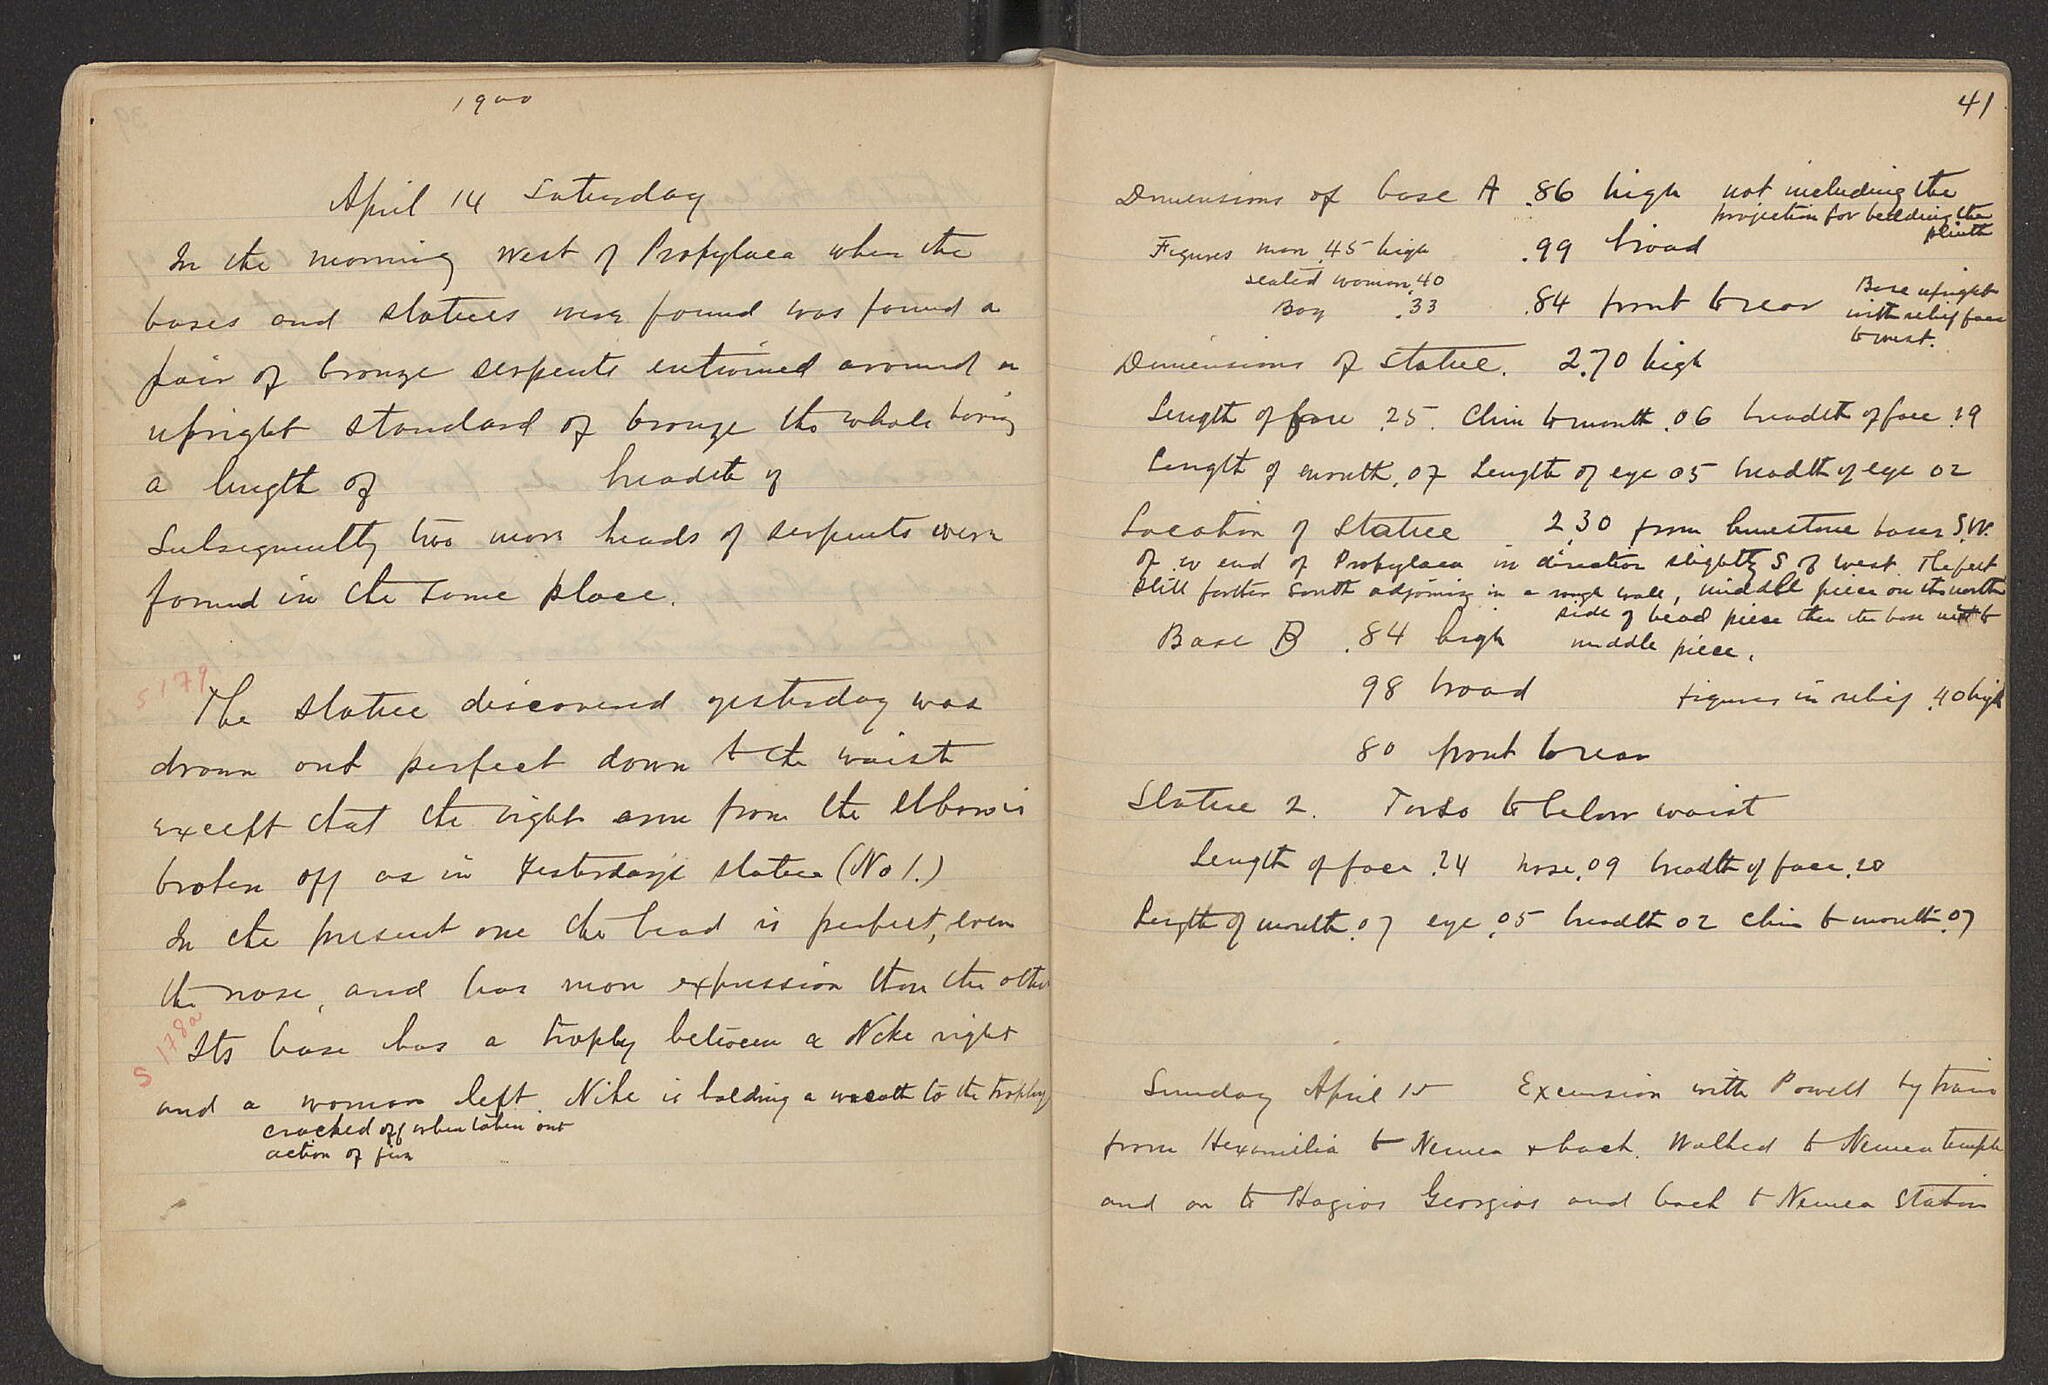 1900
April 14 Saturday
In the morning west of Propylaea where the
bases and statues were found was found a
pair of bronze serpents entwined around an
upright standard of bronze the whole having
a length of breadth of
Subsequently two more heads of serpents were
found in the same place.
S 179
The statue discovered yesterday was
drawn out perfect down to the waist
except that the right arm from the elbow is
broken off as in yesterday's statue (No 1.)
In the present one the head is perfect, even
the nose, and has more expression than the other
S 178a
Its base has a trophy between a Nike right
and a woman left. Nike is holding a wreath to the trophy
cracked off when taken out
action of fire
41
Dimensions of base A .86 high not including the
projection for bedding the
plinth
Figures man .45 high .99 broad
seated woman .40
Boy .33 .84 front to rear Base upright
with relief face
to west.
Dimensions of statue. 2.70 high
Length of face .25. Chin to mouth .06 breadth of face .19
Length of mouth .07 Length of eye 05 breadth of eye 02
Location of statue 2.30 from limestone bases S.W.
of w end of Propylaea in direction slightly S of west. The feet
still farther south adjoining in a rough wall, middle piece on the north
side of head piece then the base next to
middle piece.
Base B .84 high
98 broad Figures in relief .40 high
80 front to rear
Statue 2. Torso to below waist
Length of face .24 nose .09 breadth of face .20
Length of mouth .07 eye .05 breadth 02 chin to mouth .07
Sunday April 15 Excursion with Powell by train
from Hexamilia to Nemea & back. Walked to Nemea temple
and on to Hagios Georgios and back to Nemea Station